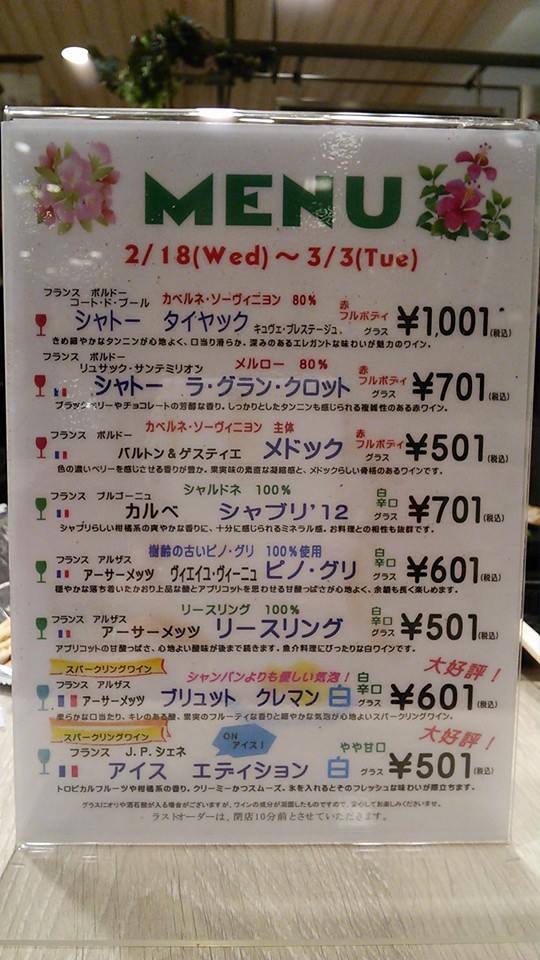 MENU
2/18(Wed)～3/3(Tue)
フランス ボルドー
コート・ド・ブール カベルネ・ソーヴィニヨン 80% 赤
シャトー タイヤック キュヴェ・プレステージュ. フルボディ グラス ¥1,001(税込)
きめ細やかなタンニンが心地よく、口当り滑らか。深みのあるエレガントな味わいが魅力のワイン。
フランス ボルドー
リュサック・サンテミリオン メルロー 80% 赤
シャトー ラ・グラン・クロット フルボディ グラス ¥701(税込)
ブラックベリーやチョコレートの芳醇な香り。しっかりとしたタンニンも感じられる複雑性のある赤ワイン。
フランス ボルドー カベルネ・ソーヴィニヨン 主体 赤
バルトン＆ゲスティエ メドック フルボディ グラス ¥501(税込)
色の濃いベリーを感じさせる香りが豊か。果実味の素直な凝縮感と、メドックらしい骨格のあるワインです。
フランス ブルゴーニュ シャルドネ 100% 白
カルベ シャブリ'12 辛口 グラス ¥701(税込)
シャブリらしい柑橘系の爽やかな香りに、十分に感じられるミネラル感。お料理との相性も抜群です。
樹齢の古いピノ・グリ 100%使用 白
フランス アルザス 辛口
アーサーメッツ ヴィエイユ・ヴィーニュ ピノ・グリ グラス ¥601(税込)
穏やかな落ち着いたかおり上品な酸とアプリコットを思わせる甘酸っぱさが心地よく、余韻も長く楽しめます。
リースリング 100% 白
フランス アルザス 辛口
アーサーメッツ リースリング グラス ¥501(税込)
アプリコットの甘酸っぱさ、心地よい酸味が後まで続きます。魚介料理にぴったりな白ワインです。
スパークリングワイン シャンパンよりも優しい気泡！ 白 大好評！
フランス アルザス 辛口
アーサーメッツ ブリュット クレマン 白 グラス ¥601(税込)
柔らかな口当たり、キレのある酸、果実のフルーティな香りと細やかな気泡が心地よいスパークリングワイン。
スパークリングワイン ON アイス！ 大好評！
フランス J.P.シェネ やや甘口
アイス エディション 白 グラス ¥501(税込)
トロピカルフルーツや柑橘系の香り。クリーミーかつスムーズ。氷を入れるとそのフレッシュな味わいが際立ちます。
グラスにオリや酒石酸が入る場合がございますが、ワインの成分が凝固したものですので、安心してお楽しみくださいませ。
ラストオーダーは、閉店10分前とさせていただきます。